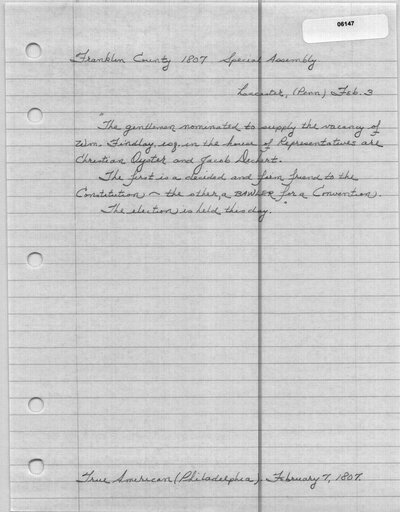 06147
Franklin County 1807 Special Assembly
Lancaster, (Penn) Feb. 3
"The gentlemen nominated to supply the vacancy of
Wm. Findlay, esq. in the house of Representatives are
Christian Oyster and Jacob Dechert.
The first is a decided and firm friend to the
Constitution — the other, a BAWLER for a Convention.
The election is held this day."
True American (Philadelphia). February 7, 1807.